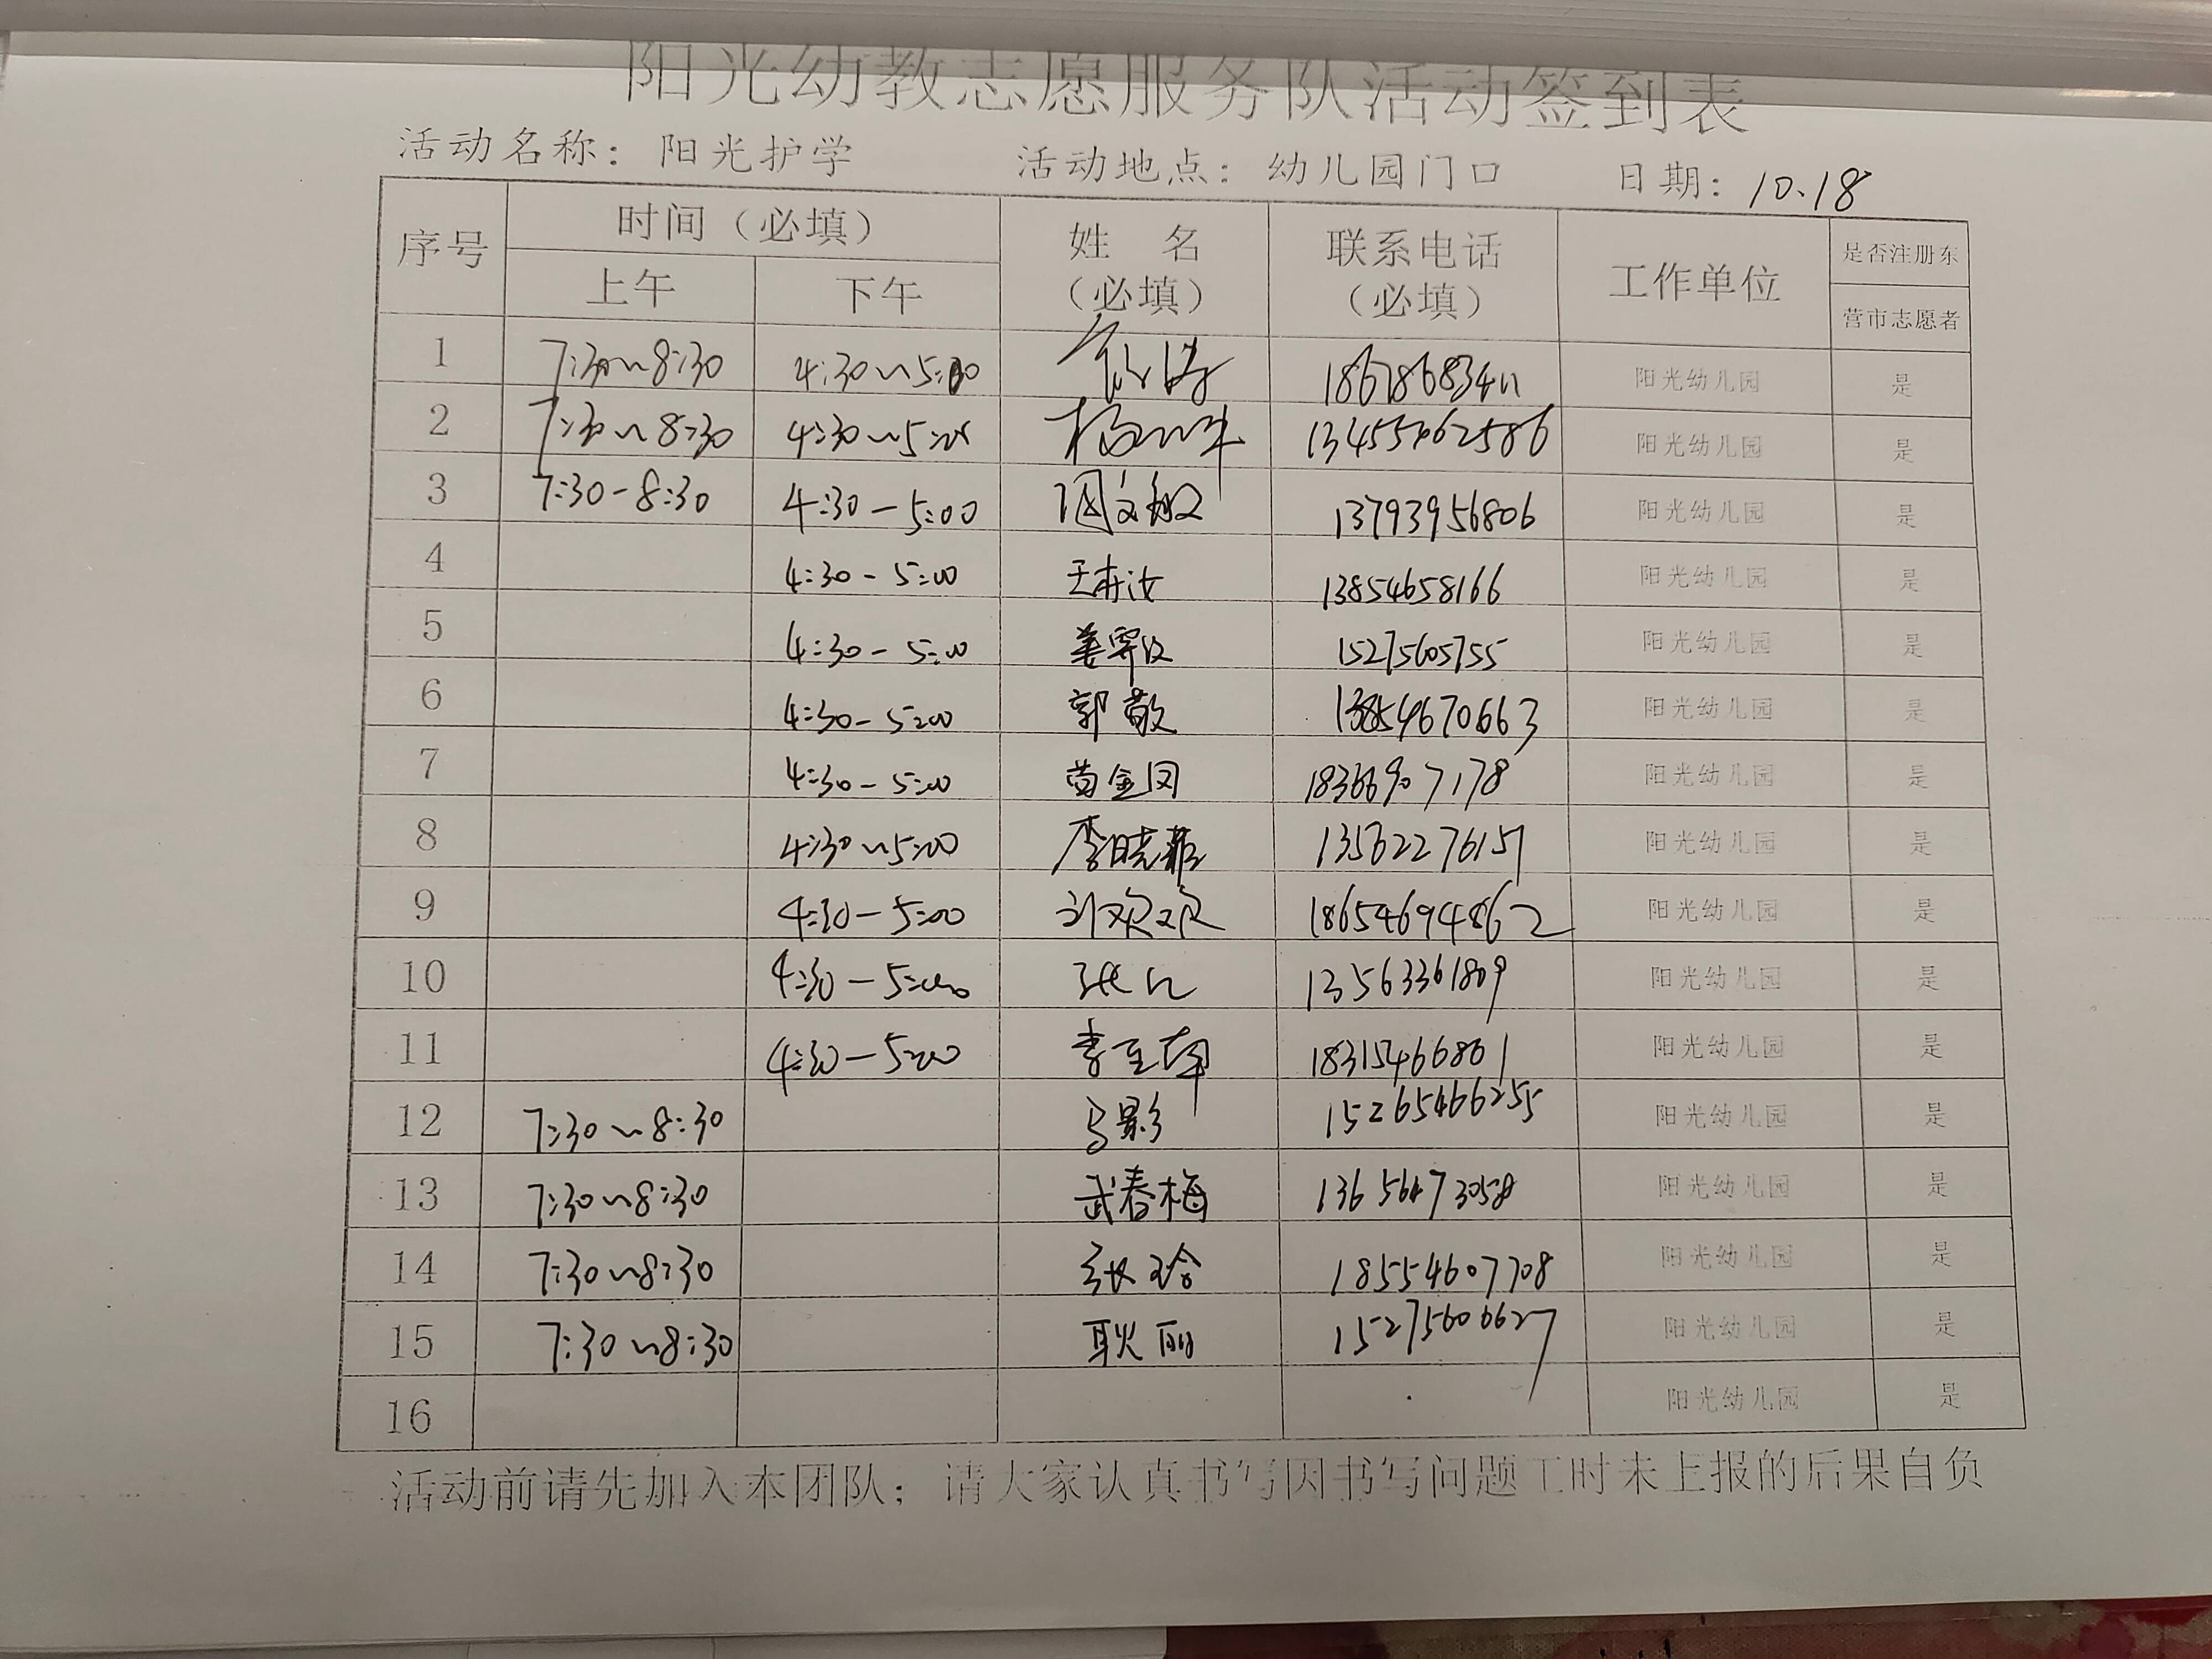 阳光幼教志愿服务队活动签到表
活动名称：阳光护学 活动地点：幼儿园门口 日期：10.18
序号 时间（必填） 姓 名（必填） 联系电话（必填） 工作单位 是否注册东营市志愿者
上午 下午
1 7:30~8:30 4:30~5:00 阳光幼儿园 是
2 7:30~8:30 4:30~5:00 阳光幼儿园 是
3 7:30-8:30 4:30-5:00 周文敏 13793956806 阳光幼儿园 是
4 4:30-5:00 13854658166 阳光幼儿园 是
5 4:30-5:00 15275605755 阳光幼儿园 是
6 4:30-5:00 郭敬 13854670663 阳光幼儿园 是
7 4:30-5:00 苗金凤 18366907178 阳光幼儿园 是
8 4:30~5:00 李晓菲 13562276151 阳光幼儿园 是
9 4:30-5:00 刘欢欢 18654694862 阳光幼儿园 是
10 4:30-5:00 13563361809 阳光幼儿园 是
11 4:30-5:00 18315466861 阳光幼儿园 是
12 7:30~8:30 马影 15265466255 阳光幼儿园 是
13 7:30~8:30 武春梅 阳光幼儿园 是
14 7:30~8:30 张玲 18554607708 阳光幼儿园 是
15 7:30~8:30 耿丽 15275606627 阳光幼儿园 是
16 阳光幼儿园 是
活动前请先加入本团队；请大家认真书写因书写问题工时未上报的后果自负